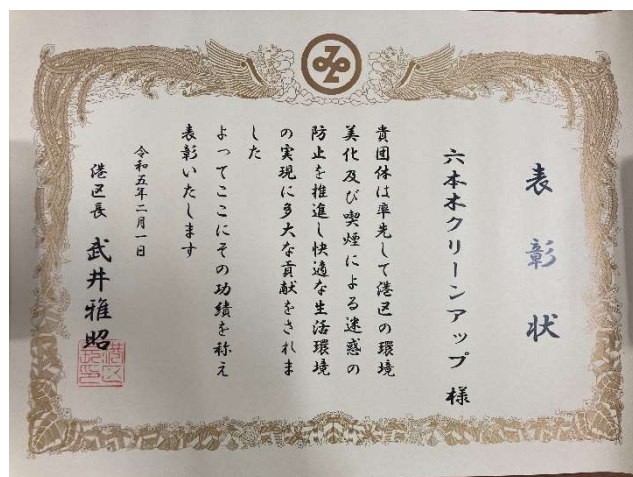 表彰状
六本木クリーンアップ 様
貴団体は率先して港区の環境
美化及び喫煙による迷惑の
防止を推進し快適な生活環境
の実現に多大な貢献をされま
した
よってここにその功績を称え
表彰いたします
令和五年二月一日
港区長 武井雅昭